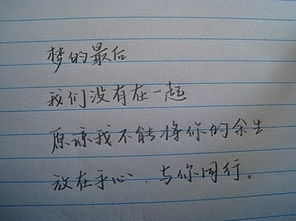 梦的最后
我们没有在一起
原谅我不能将你的余生
放在手心 与你同行。